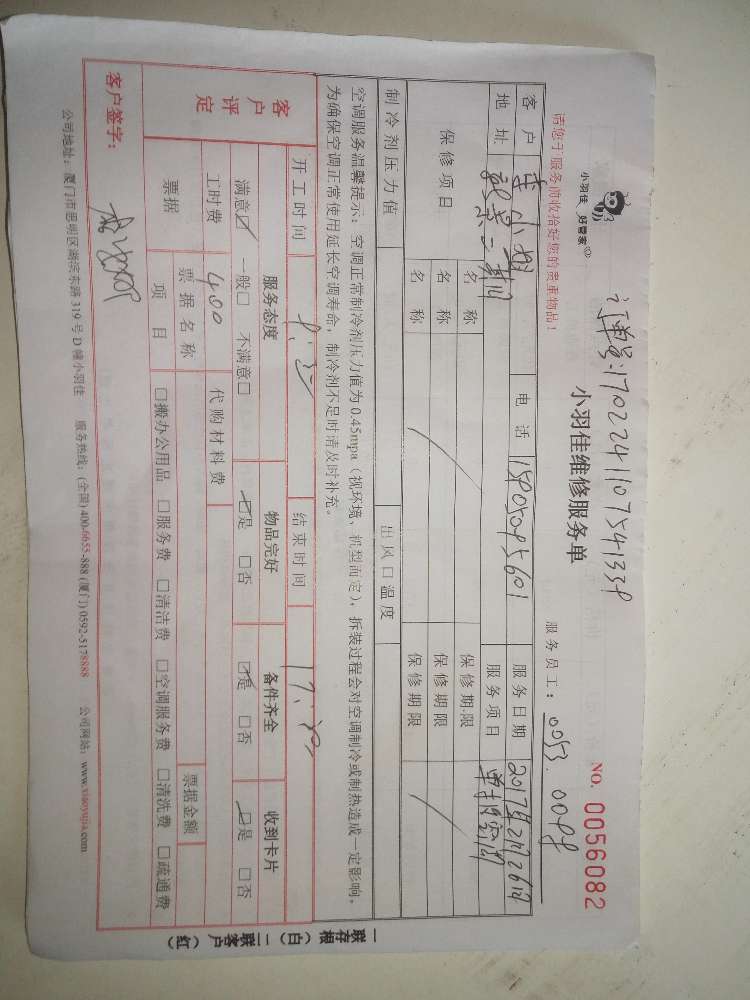 订单号:170224110754133P
小羽佳 好管家
小羽佳维修服务单
NO. 0056082
请您于服务前收拾好您的贵重物品!
服务员工: 0053.
客户
电话
服务日期 2017年2月26日
地址
服务项目
保修项目
名称
保修期限
名称
保修期限
名称
保修期限
制冷剂压力值
出风口温度
空调服务温馨提示:空调正常制冷剂压力值为0.45mpa(视环境、机型而定),拆装过程会对空调制冷或制热造成一定影响,
为确保空调正常使用延长空调寿命,制冷剂不足时请及时补充。
开工时间
结束时间
客户评定
服务态度
物品完好
备件齐全
收到卡片
满意☑ 一般□ 不满意□
☑是 □否
☑是 □否
☑是 □否
工时费 400
代购材料费
票据
票据名称
票据金额
项目
□搬办公用品 □服务费 □清洁费 □空调服务费 □清洗费 □疏通费
客户签字:
公司地址:厦门市思明区湖滨东路319号D幢小羽佳 服务热线:(全国)400-6655-888 (厦门) 0592-5178888 公司网站:www.xiaoyujia.com
一联存根(白)二联客户(红)